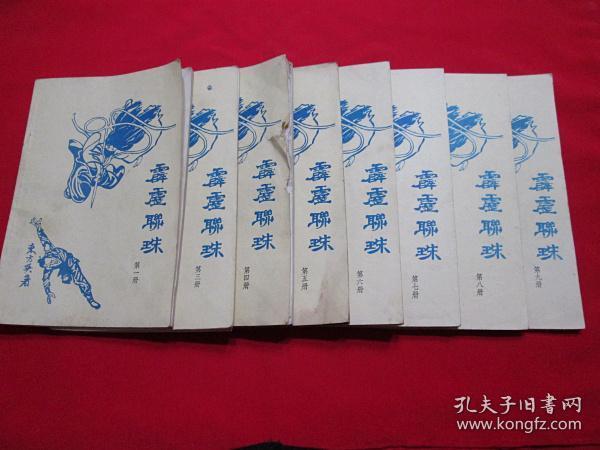 霹靂聯珠
第一册
東方英著
霹靂聯珠
第三册
霹靂聯珠
第四册
霹靂聯珠
第五册
霹靂聯珠
第六册
霹靂聯珠
第七册
霹靂聯珠
第八册
霹靂聯珠
第九册
孔夫子旧书网
www.kongfz.com